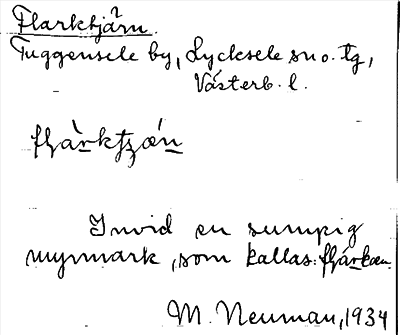 Flarktjärn.
Tuggensele by, Lycksele sn o. tg,
Västerb. l.
Invid en sumpig
myrmark, som kallas:
M. Neuman, 1934